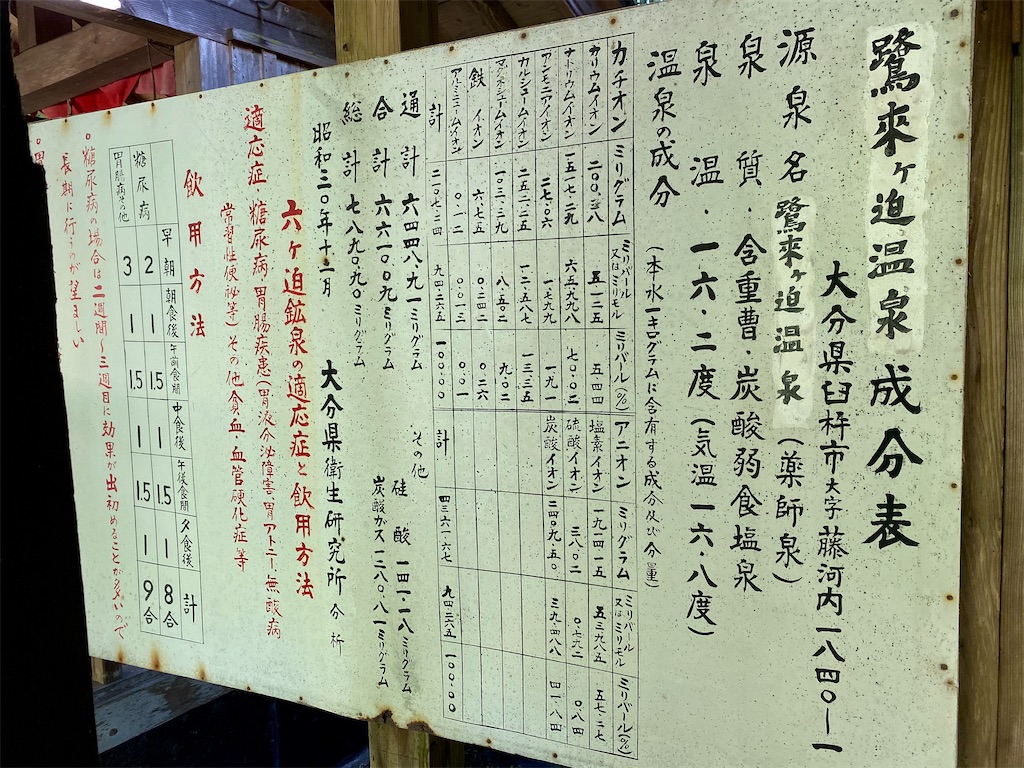 鷺來ヶ迫温泉成分表
大分県臼杵市大字藤河内一八四〇ー一
源泉名 鷺來ヶ迫温泉(薬師泉)
泉質・含重曹・炭酸弱食塩泉
泉温・一六・二度(気温一六・八度)
温泉の成分 (本水一キログラムに含有する成分及び分量)
カチオン ミリグラム ミリバール又はミリモル ミリバール(%) アニオン ミリグラム ミリバール又はミリモル ミリバール(%)
カリウムイオン 二〇〇・三八 五・一二五 五・四四 塩素イオン 一九一四・一五 五三・九八五 五七・二七
ナトリウムイオン 一五一七・二九 六五・九九八 七〇・〇二 硫酸イオン 三八・〇二 〇・七九二 〇・八四
アンモニアイオン 二七・〇六 一・七九九 一・九一 炭酸イオン 二四〇九・五〇 三九・四八八 四一・八四
カルシュームイオン 二五二・二五 一二・五八七 一三・三五
マグネシュームイオン 一〇三・三九 八・五〇二 九・〇二
鉄イオン 六・七五 〇・二四二 〇・二六
アルミニュームイオン 〇・一二 〇・〇一三 〇・〇一
計 二一〇七・二四 九四・二六五 一〇〇・〇〇 計 四三六一・六七 九四・二六五 一〇〇・〇〇
通計 六四四八・九一ミリグラム その他 硅酸 一四一・一八ミリグラム
合計 六六一〇・〇九ミリグラム 炭酸ガス 一二八〇・八一ミリグラム
総計 七八九〇・九〇ミリグラム
昭和三〇年十二月 大分県衛生研究所 分析
六ヶ迫鉱泉の適応症と飲用方法
適応症・糖尿病・胃腸疾患(胃液分泌障害、胃アトニー、無酸病
常習性便秘等)その他貧血・血管硬化症等
飲用方法
早朝 朝食後 午前食間 中食後 午後食間 夕食後 計
糖尿病 2 1 1.5 1 1.5 1 8合
胃腸病その他 3 1 1.5 1 1.5 1 9合
○糖尿病の場合は二週間〜三週目に効果が出初めることが多いので
長期に行うのが望ましい